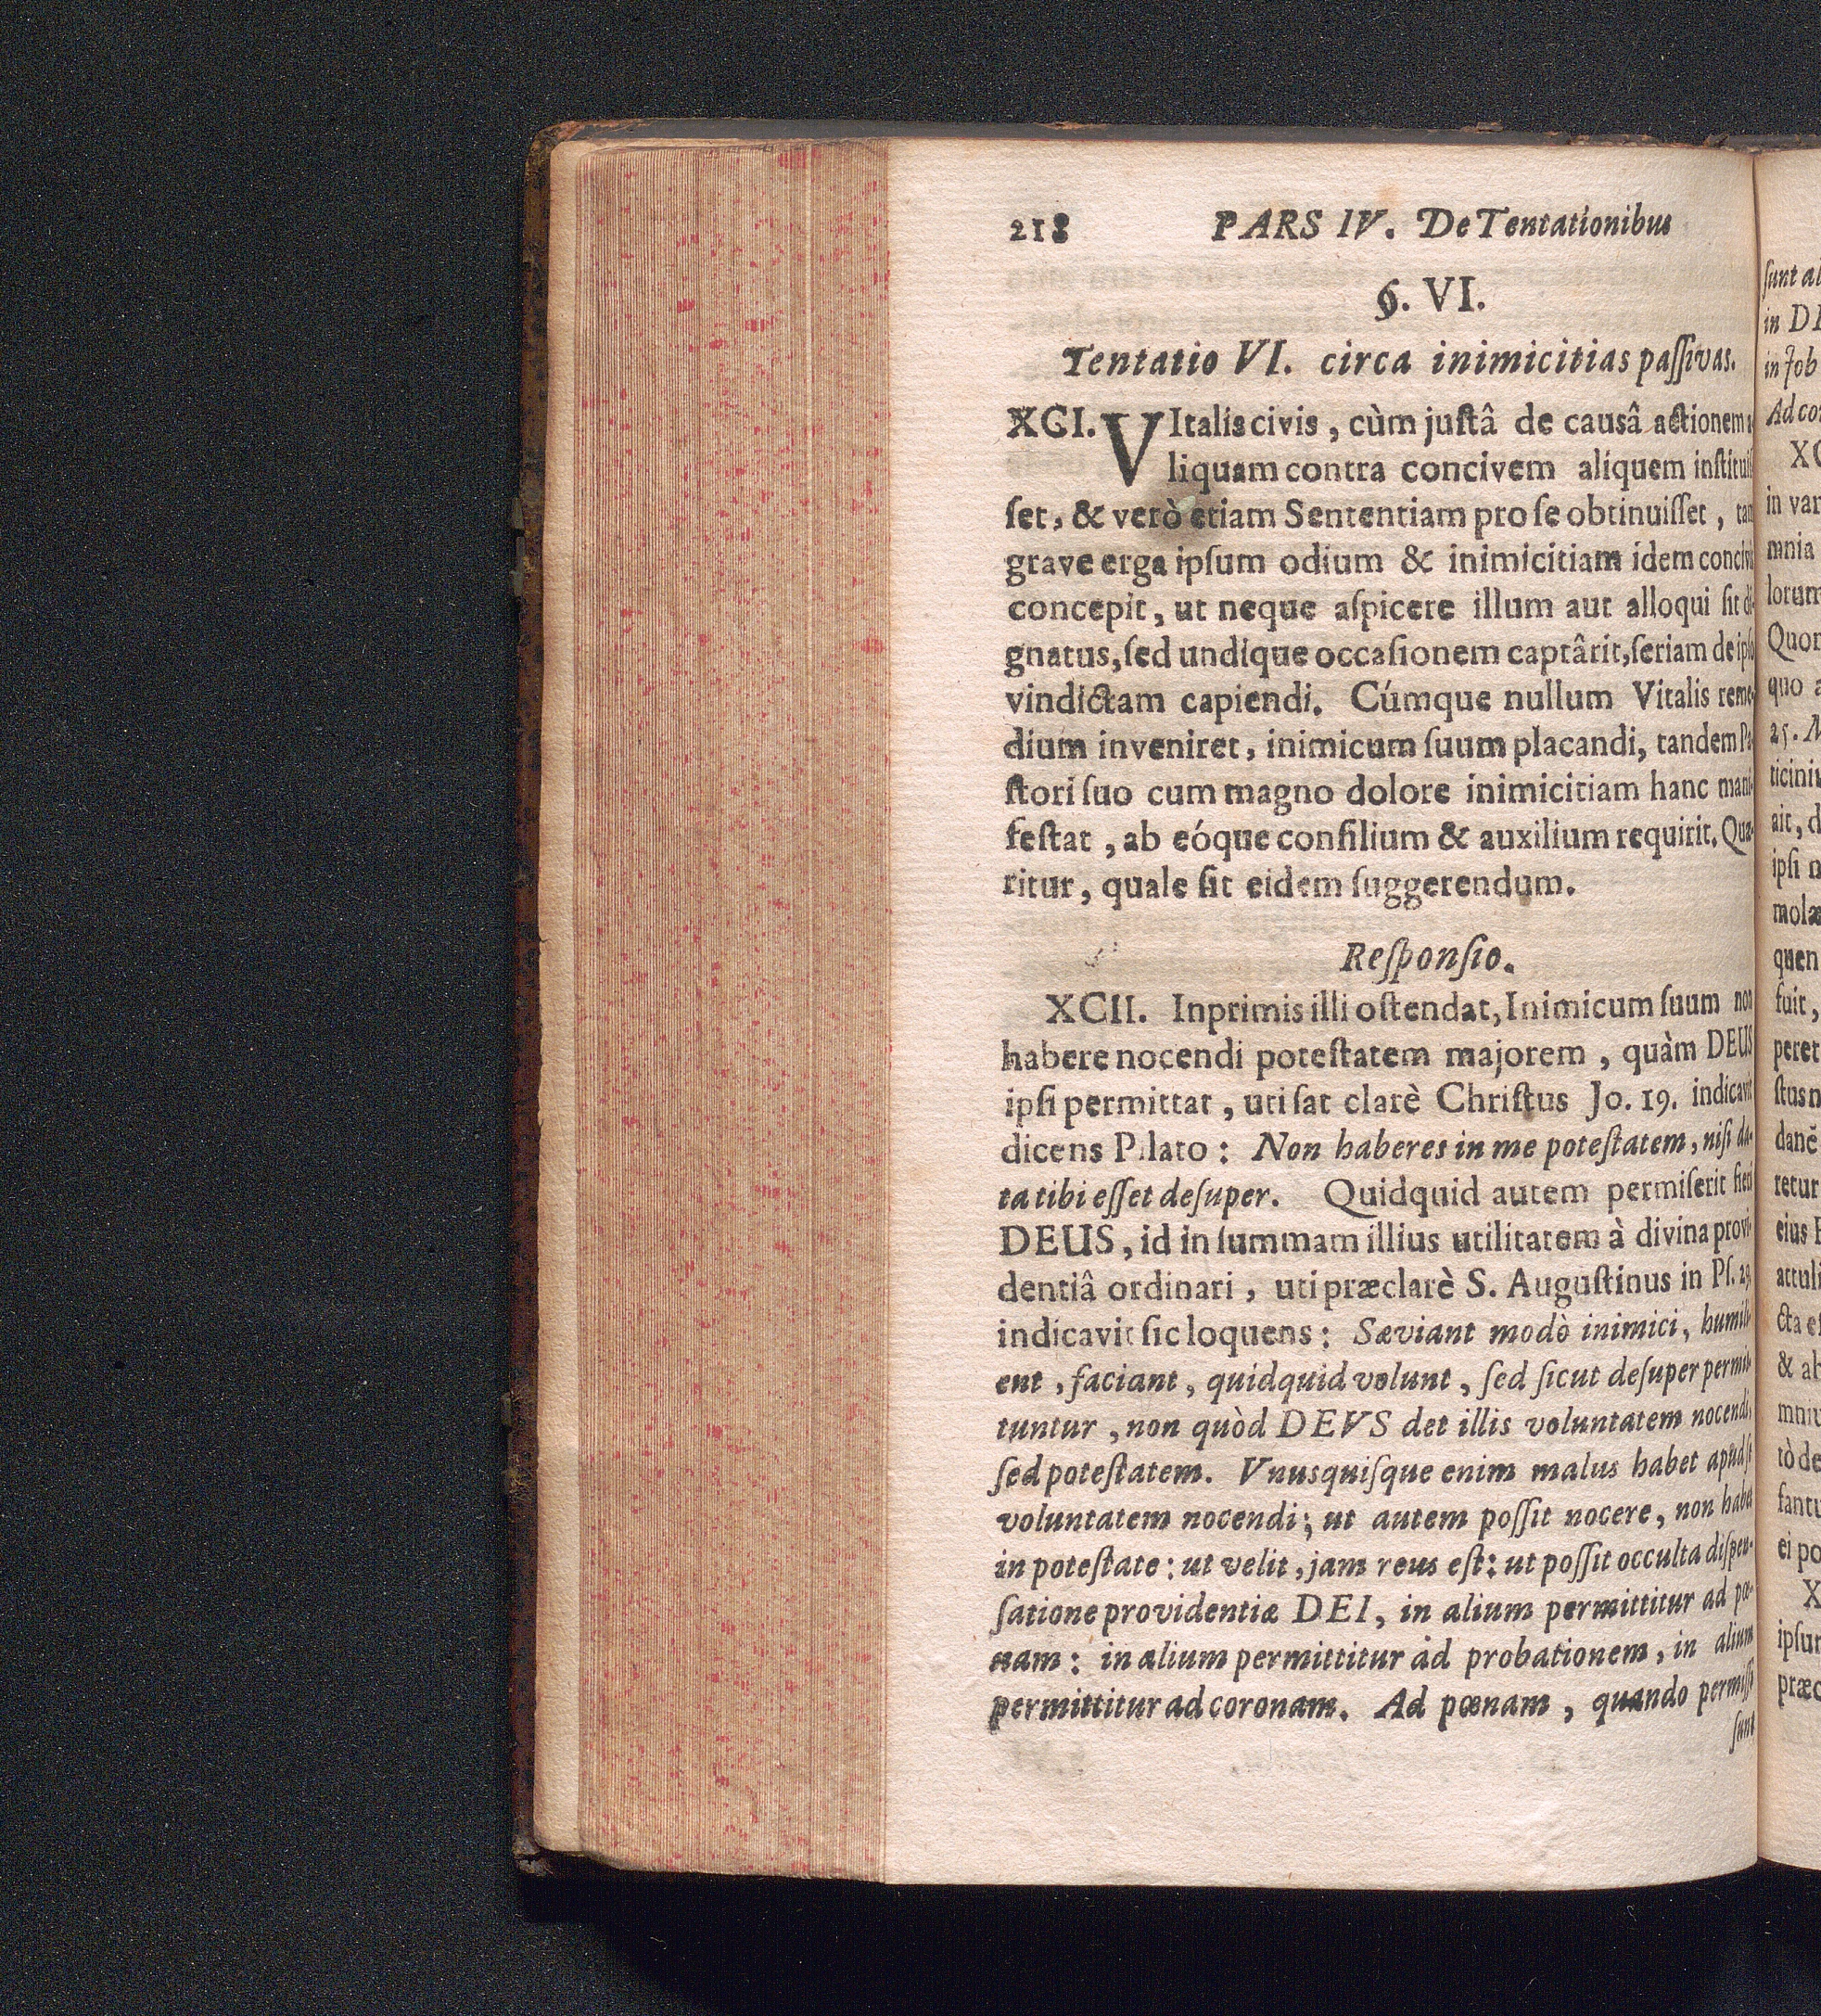 218 PARS IV. De Tentationibus
§. VI.
Tentatio VI. circa inimicitias paſſivas.
XCI. VItalis civis, cùm juſtâ de causâ actionem a-
liquam contra concivem aliquem inſtituiſ-
ſet, & verò etiam Sententiam pro ſe obtinuiſſet, tam
grave erga ipſum odium & inimicitiam idem concivis
concepit, ut neque aſpicere illum aut alloqui ſit di-
gnatus, ſed undique occaſionem captârit, ſeriam de ipſo
vindictam capiendi. Cúmque nullum Vitalis reme-
dium inveniret, inimicum ſuum placandi, tandem Pa-
ſtori ſuo cum magno dolore inimicitiam hanc mani-
feſtat, ab eóque conſilium & auxilium requirit. Quæ-
ritur, quale ſit eidem ſuggerendum.
Reſponſio.
XCII. Inprimis illi oſtendat, Inimicum ſuum non
habere nocendi poteſtatem majorem, quàm DEUS
ipſi permittat, uti ſat clarè Chriſtus Jo. 19. indicavit
dicens Pilato: Non haberes in me poteſtatem, niſi da-
ta tibi eſſet deſuper. Quidquid autem permiſerit fieri
DEUS, id in ſummam illius utilitatem à divina provi-
dentiâ ordinari, uti præclarè S. Auguſtinus in Pſ. 29.
indicavit ſic loquens: Sæviant modò inimici, humili-
ent, faciant, quidquid volunt, ſed ſicut deſuper permit-
tuntur, non quòd DEVS det illis voluntatem nocendi,
ſed poteſtatem. Vnusquiſque enim malus habet apud ſe
voluntatem nocendi; ut autem poſſit nocere, non habet
in poteſtate: ut velit, jam reus eſt: ut poſſit occulta diſpen-
ſatione providentiæ DEI, in alium permittitur ad pœ-
nam: in alium permittitur ad probationem, in alium
permittitur ad coronam. Ad pœnam, quando permiſſi
ſunt
ſunt
in
in Job
in
mnia
25.
ipſi
fuit,
peret
retur
eius
&
ei